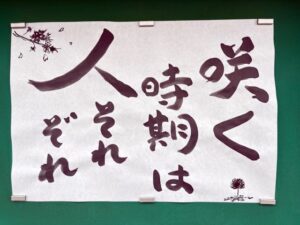 咲く
時期は
人それ
ぞれ